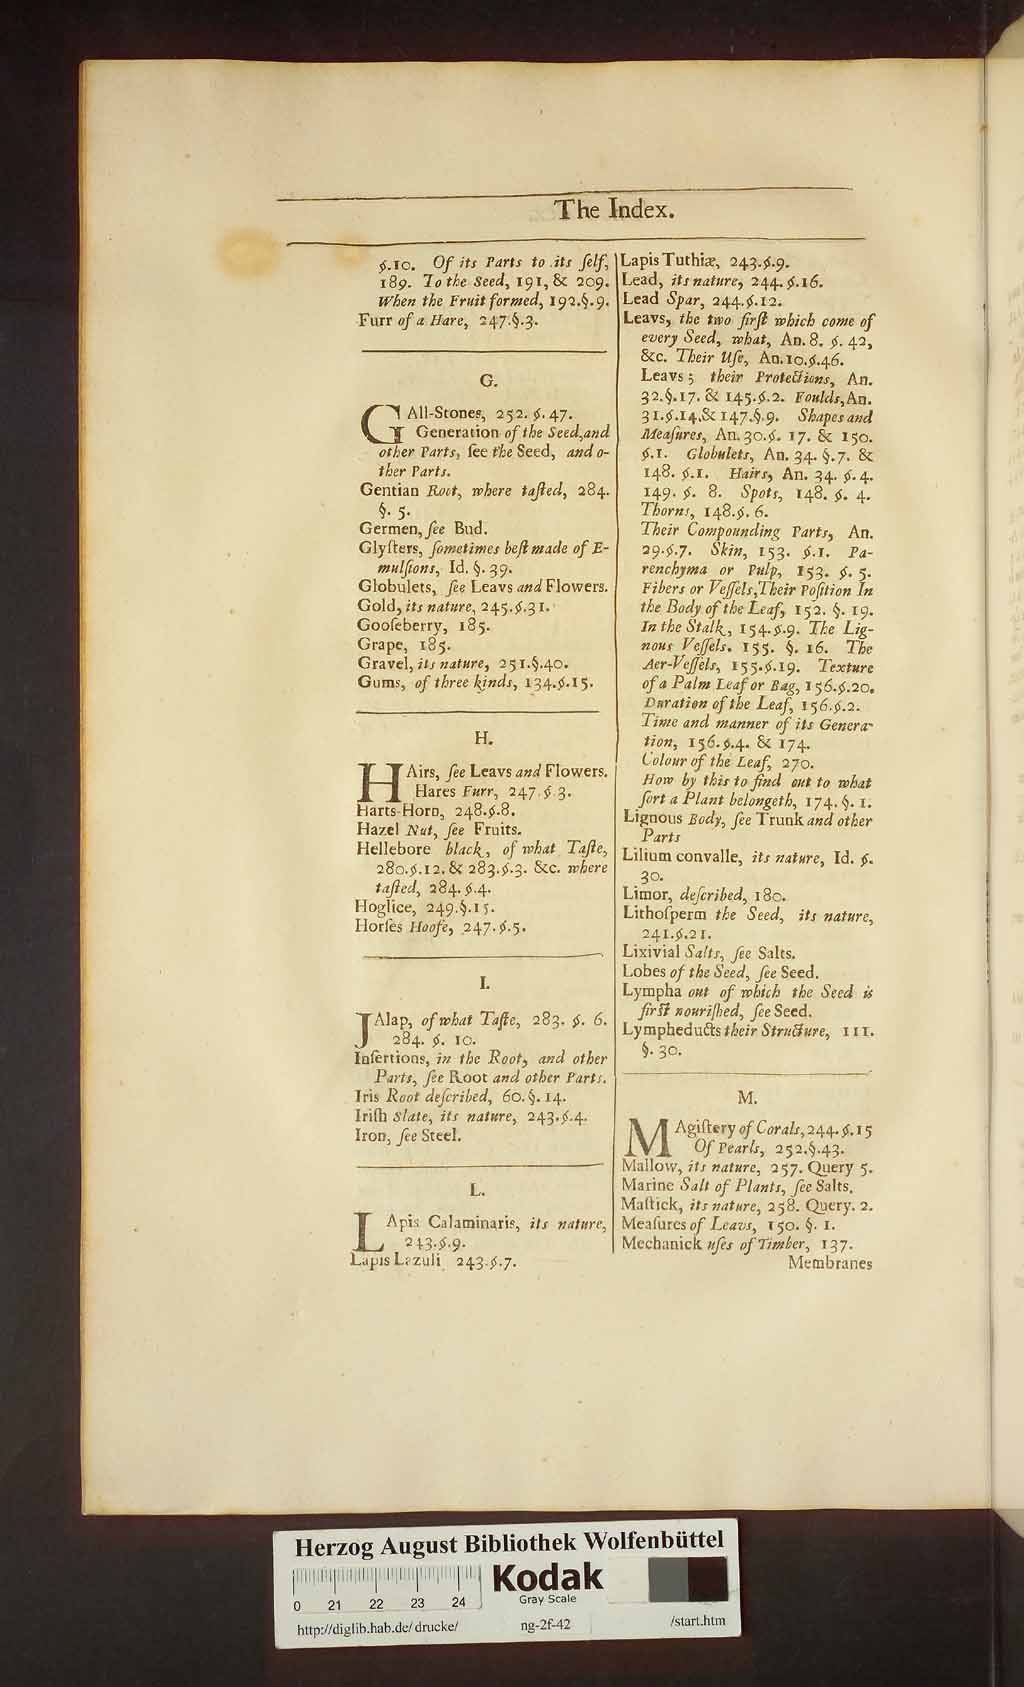 The Index.
§.10. Of its Parts to its ſelf,
189. To the Seed, 191, & 209.
When the Fruit formed, 192.§.9.
Furr of a Hare, 247.§.3.
G.
GAll-Stones, 252. §. 47.
Generation of the Seed,and
other Parts, ſee the Seed, and o-
ther Parts.
Gentian Root, where taſted, 284.
§. 5.
Germen, ſee Bud.
Glyſters, ſometimes beſt made of E-
mulſions, Id. §. 39.
Globulets, ſee Leavs and Flowers.
Gold, its nature, 245.§.31.
Gooſeberry, 185.
Grape, 185.
Gravel, its nature, 251.§.40.
Gums, of three kinds, 134.§.15.
H.
HAirs, ſee Leavs and Flowers.
Hares Furr, 247.§.3.
Harts-Horn, 248.§.8.
Hazel Nut, ſee Fruits.
Hellebore black, of what Taſte,
280.§.12. & 283.§.3. &c. where
taſted, 284. §.4.
Hoglice, 249.§.15.
Horſes Hoofe, 247.§.5.
I.
JAlap, of what Taſte, 283. §. 6.
284. §. 10.
Inſertions, in the Root, and other
Parts, ſee Root and other Parts.
Iris Root deſcribed, 60.§.14.
Iriſh Slate, its nature, 243.§.4.
Iron, ſee Steel.
L.
LApis Calaminaris, its nature,
243.§.9.
Lapis Lazuli 243.§.7.
Lapis Tuthiæ, 243.§.9.
Lead, its nature, 244.§.16.
Lead Spar, 244.§.12.
Leavs, the two firſt which come of
every Seed, what, An. 8. §. 42,
&c. Their Uſe, An.10.§.46.
Leavs; their Protections, An.
32.§.17. & 145.§.2. Foulds,An.
31.§.14.& 147.§.9. Shapes and
Meaſures, An. 30.§. 17. & 150.
§.1. Globulets, An. 34. §.7. &
148. §.1. Hairs, An. 34. §.4.
149. §. 8. Spots, 148. §. 4.
Thorns, 148.§. 6.
Their Compounding Parts, An.
29.§.7. Skin, 153. §.1. Pa-
renchyma or Pulp, 153. §. 5.
Fibers or Veſſels,Their Poſition In
the Body of the Leaf, 152. §. 19.
In the Stalk, 154.§.9. The Lig-
nous Veſſels. 155. §. 16. The
Aer-Veſſels, 155.§.19. Texture
of a Palm Leaf or Bag, 156.§.20.
Duration of the Leaf, 156.§.2.
Time and manner of its Genera-
tion, 156.§.4. & 174.
Colour of the Leaf, 270.
How by this to find out to what
ſort a Plant belongeth, 174.§. 1.
Lignous Body, ſee Trunk and other
Parts
Lilium convalle, its nature, Id. §.
30.
Limor, deſcribed, 180.
Lithoſperm the Seed, its nature,
241.§.21.
Lixivial Salts, ſee Salts.
Lobes of the Seed, ſee Seed.
Lympha out of which the Seed is
firſt nouriſhed, ſee Seed.
Lympheducts their Structure, 111.
§. 30.
M.
MAgiſtery of Corals,244.§.15
Of Pearls, 252.§.43.
Mallow, its nature, 257. Query 5.
Marine Salt of Plants, ſee Salts.
Maſtick, its nature, 258. Query. 2.
Meaſures of Leavs, 150. §. 1.
Mechanick uſes of Timber, 137.
Membranes
Herzog August Bibliothek Wolfenbüttel
Kodak
Gray Scale
0 21 22 23 24
http://diglib.hab.de/drucke/ ng-2f-42 /start.htm